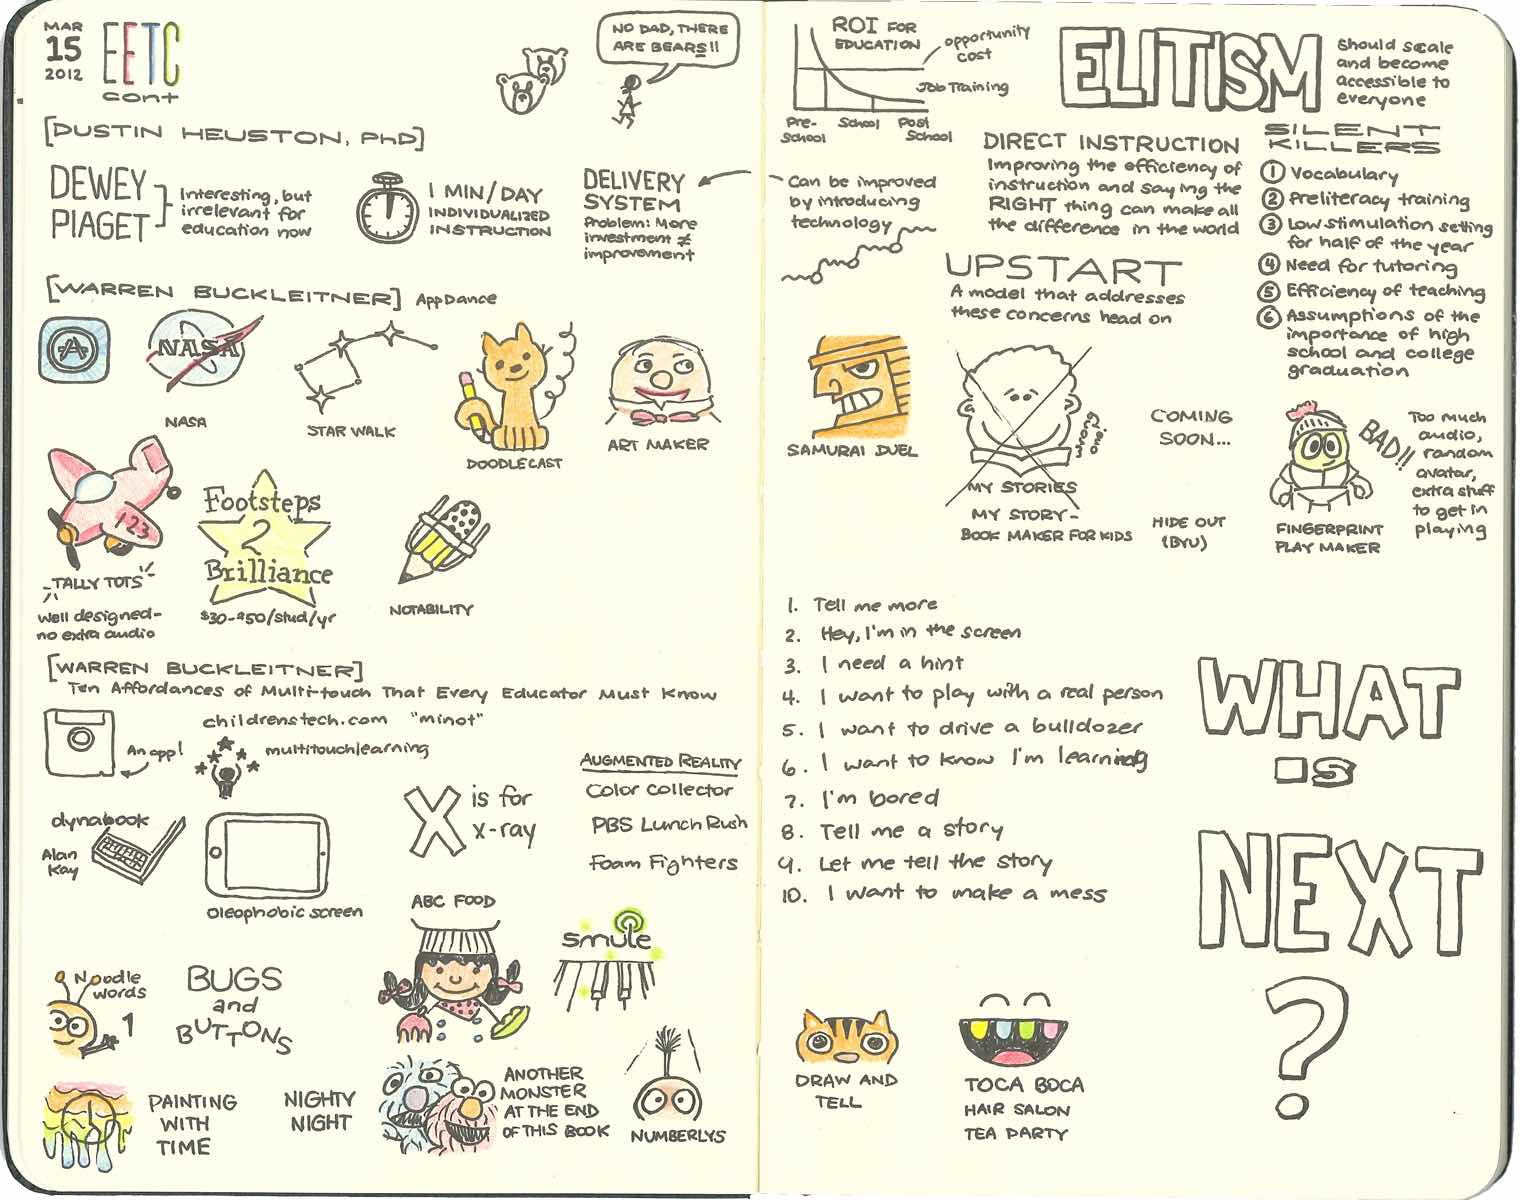 MAR
15
2012
EETC
cont
NO DAD, THERE
ARE BEARS!!
[DUSTIN HEUSTON, PhD]
DEWEY
PIAGET
Interesting, but
irrelevant for
education now
1 MIN/DAY
INDIVIDUALIZED
INSTRUCTION
DELIVERY
SYSTEM
Problem: More
investment ≠
improvement
[WARREN BUCKLEITNER] App Dance
A
NASA
NASA
STAR WALK
DOODLECAST
ART MAKER
123
TALLY TOTS
Well designed-
no extra audio
Footsteps
2
Brilliance
$30-$50/stud/yr
NOTABILITY
[WARREN BUCKLEITNER]
Ten Affordances of Multi-touch That Every Educator Must Know
childrenstech.com "minot"
An app!
multitouchlearning
dynabook
Alan
Kay
Oleophobic screen
X is for
x-ray
AUGMENTED REALITY
Color Collector
PBS Lunch Rush
Foam Fighters
ABC FOOD
smule
Noodle
words
1
BUGS
and
BUTTONS
PAINTING
WITH
TIME
NIGHTY
NIGHT
ANOTHER
MONSTER
AT THE END
OF THIS BOOK
NUMBERLYS
ROI FOR
EDUCATION
opportunity
cost
Job Training
Pre-
School
School
Post
School
ELITISM
Should scale
and become
accessible to
everyone
Can be improved
by introducing
technology
DIRECT INSTRUCTION
Improving the efficiency of
instruction and saying the
RIGHT thing can make all
the difference in the world
SILENT
KILLERS
1 Vocabulary
2 Preliteracy training
3 Low stimulation setting
for half of the year
4 Need for tutoring
5 Efficiency of teaching
6 Assumptions of the
importance of high
school and college
graduation
UPSTART
A model that addresses
these concerns head on
SAMURAI DUEL
wrong
one!
MY STORIES
MY STORY-
BOOK MAKER FOR KIDS
COMING
SOON...
HIDE OUT
(BYU)
BAD!!
FINGERPRINT
PLAY MAKER
Too much
audio,
random
avatar,
extra stuff
to get in
playing
1. Tell me more
2. Hey, I'm in the screen
3. I need a hint
4. I want to play with a real person
5. I want to drive a bulldozer
6. I want to know I'm learning
7. I'm bored
8. Tell me a story
9. Let me tell the story
10. I want to make a mess
WHAT
IS
NEXT
?
DRAW AND
TELL
TOCA BOCA
HAIR SALON
TEA PARTY